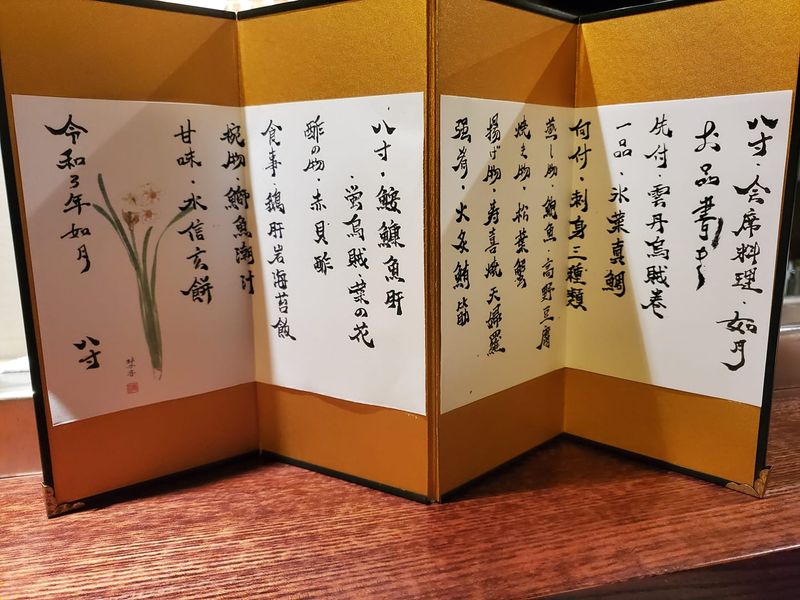 八寸・会席料理・如月
お品書き
先付・雲丹烏賊巻
一品・氷菜真鯛
向付・刺身三種類
蒸し物・鮑魚 高野豆腐
焼き物・松葉蟹
揚げ物・寿喜焼天婦羅
強肴・火炙鮪筋
八寸・鮟鱇魚肝
・蛍烏賊・菜の花
酢の物・赤貝酢
食事・鵝肝岩海苔飯
椀物・鰤魚潮汁
甘味・水信玄餅
令和3年如月
八寸